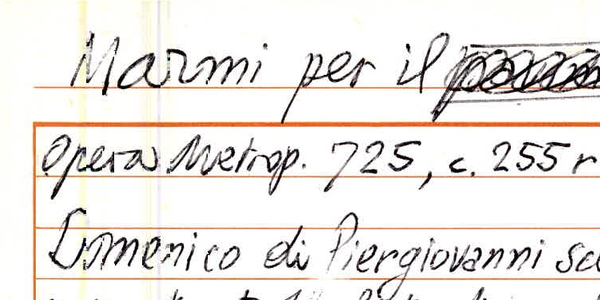 Marmi per il
Opera Metrop. 725, c. 255 r
Domenico di Piergiovanni sc